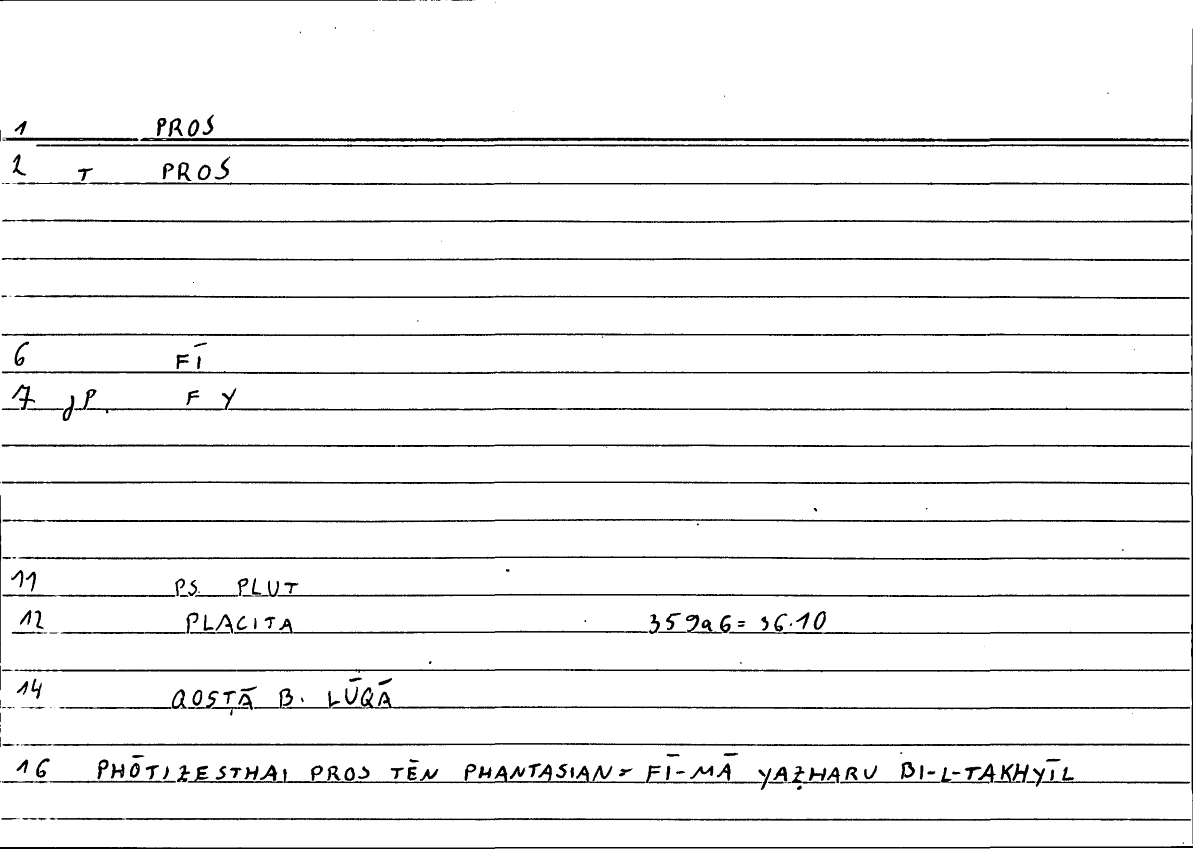 1 PROS
2 T PROS
6 FĪ
7 gP. F Y
11 PS. PLUT
12 PLACITA 359a6= 36.10
14 QOSṬĀ B. LŪQĀ
16 PHŌTIZESTHAI PROS TĒN PHANTASIAN= FĪ-MĀ YAẒHARU BI-L-TAKHYĪL